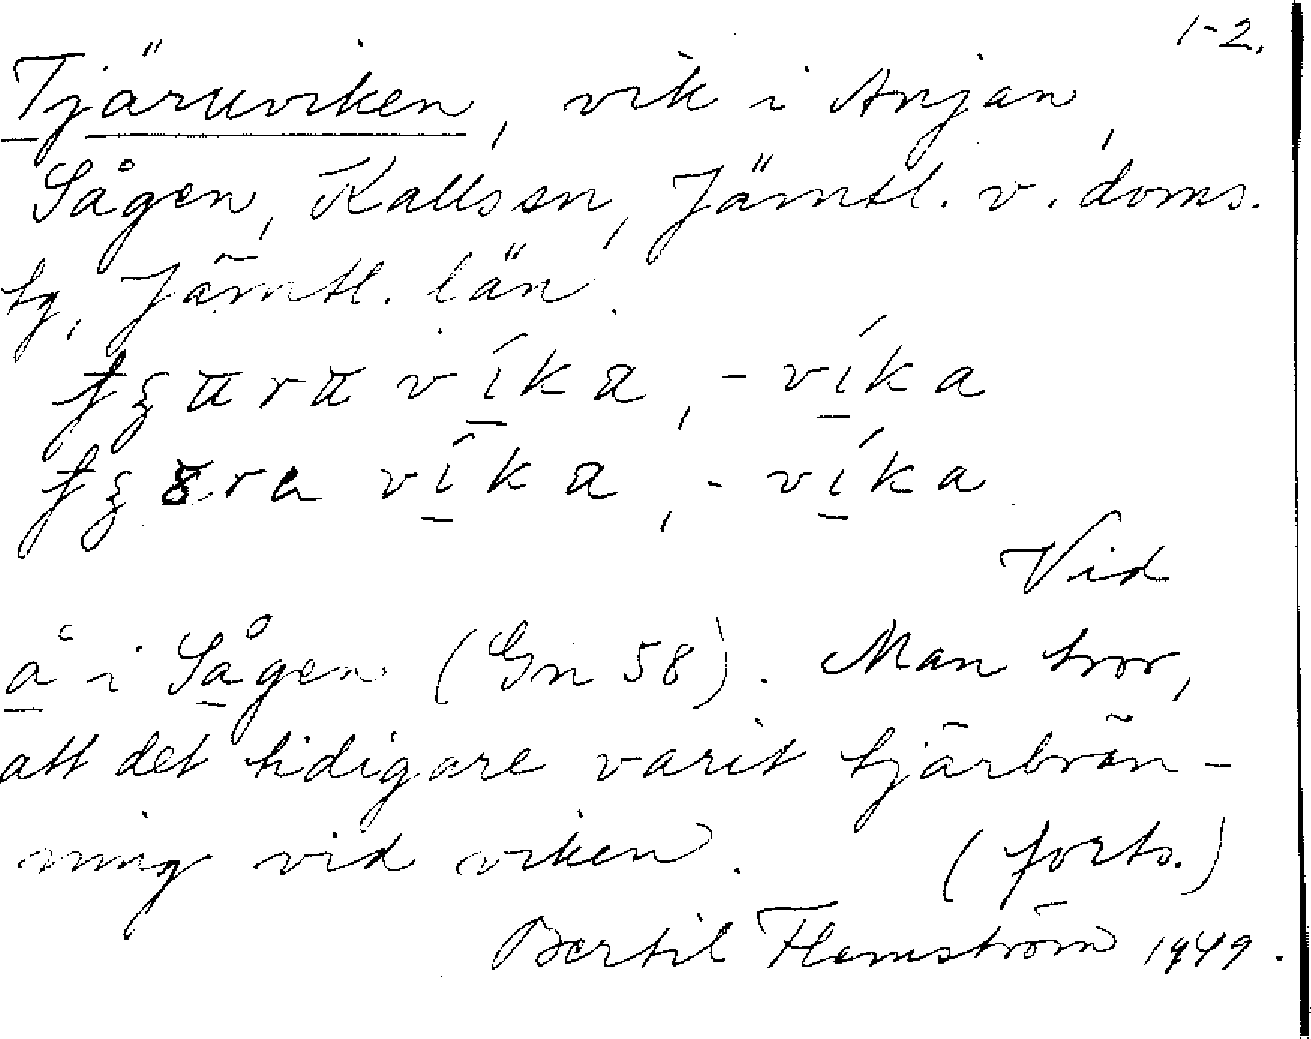 1-2.
Tjäruviken, vik i Anjan,
Sågen, Kalls sn, Jämtl. v. doms.
tg, Jämtl. län.
víka, -víka
víka, -víka
Vid
å i Sågen (Gn 58). Man tror,
att det tidigare varit tjärbrän-
ning vid viken. (forts.)
Bertil Flemström 1949.